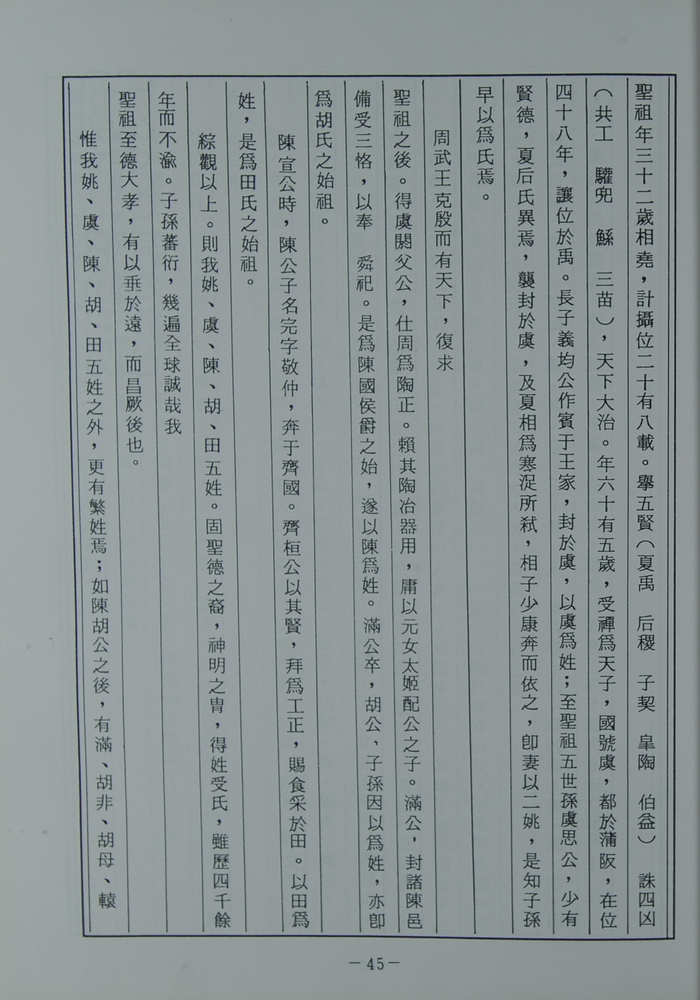 聖祖年三十二歲相堯，計攝位二十有八載。舉五賢（夏禹　后稷　子契　皐陶　伯益）　誅四凶
（共工　驩兜　鯀　三苗），天下大治。年六十有五歲，受禪爲天子，國號虞，都於蒲阪，在位
四十八年，讓位於禹。長子義均公作賓于王家，封於虞，以虞爲姓；至聖祖五世孫虞思公，少有
賢德，夏后氏異焉，襲封於虞，及夏相爲寒浞所弒，相子少康奔而依之，卽妻以二姚，是知子孫
早以爲氏焉。
周武王克殷而有天下，復求
聖祖之後。得虞閼父公，仕周爲陶正。賴其陶冶器用，庸以元女太姬配公之子。滿公，封諸陳邑
備受三恪，以奉　舜祀。是爲陳國侯爵之始，遂以陳爲姓。滿公卒，胡公、子孫因以爲姓，亦卽
爲胡氏之始祖。
陳宣公時，陳公子名完字敬仲，奔于齊國。齊桓公以其賢，拜爲工正，賜食采於田。以田爲
姓，是爲田氏之始祖。
綜觀以上。則我姚、虞、陳、胡、田五姓。固聖德之裔，神明之胄，得姓受氏，雖歷四千餘
年而不渝。子孫蕃衍，幾遍全球誠哉我
聖祖至德大孝，有以垂於遠，而昌厥後也。
惟我姚、虞、陳、胡、田五姓之外，更有繁姓焉；如陳胡公之後，有滿、胡非、胡母、轅
－45－